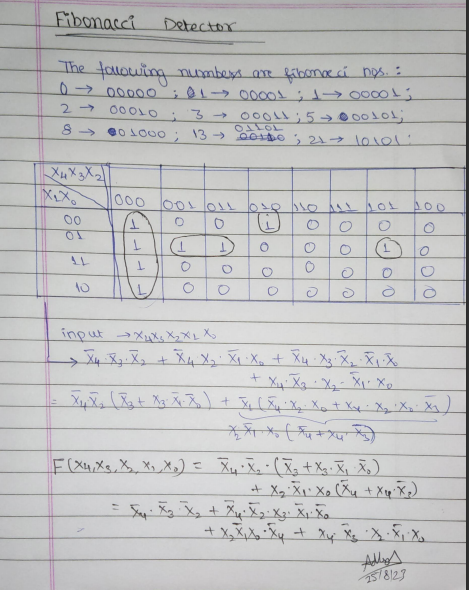 Fibonacci Detector
The following numbers are fibonacci nos. :
0 → 00000 ; 01 → 00001 ; 1 → 00001 ;
2 → 00010 ; 3 → 00011 ; 5 → 00101 ;
8 → 01000 ; 13 → 01101 ; 21 → 10101 .
X₄X₃X₂
X₁X₀ 000 001 011 010 110 111 101 100
00 1 0 0 1 0 0 0 0
01 1 1 1 0 0 0 1 0
11 1 0 0 0 0 0 0 0
10 1 0 0 0 0 0 0 0
input → X₄X₃X₂X₁X₀
→ X̄₄·X̄₃·X̄₂ + X̄₄X₂·X̄₁·X₀ + X̄₄·X₃·X̄₂·X̄₁·X̄₀
+ X₄·X̄₃·X₂·X̄₁·X₀
= X̄₄X̄₂(X̄₃ + X₃·X̄₁·X̄₀) + X̄₁(X̄₄·X₂·X₀ + X₄·X₂·X₀·X̄₃)
X₂X̄₁·X₀(X̄₄ + X₄·X̄₃)
F(X₄,X₃,X₂,X₁,X₀) = X̄₄·X̄₂·(X̄₃ + X₃·X̄₁·X̄₀)
+ X₂·X̄₁·X₀(X̄₄ + X₄·X̄₃)
= X̄₄·X̄₃·X̄₂ + X̄₄·X̄₂·X₃·X̄₁·X̄₀
+ X₂X̄₁X₀·X̄₄ + X₄·X̄₃·X₂·X̄₁·X₀
25/8/23